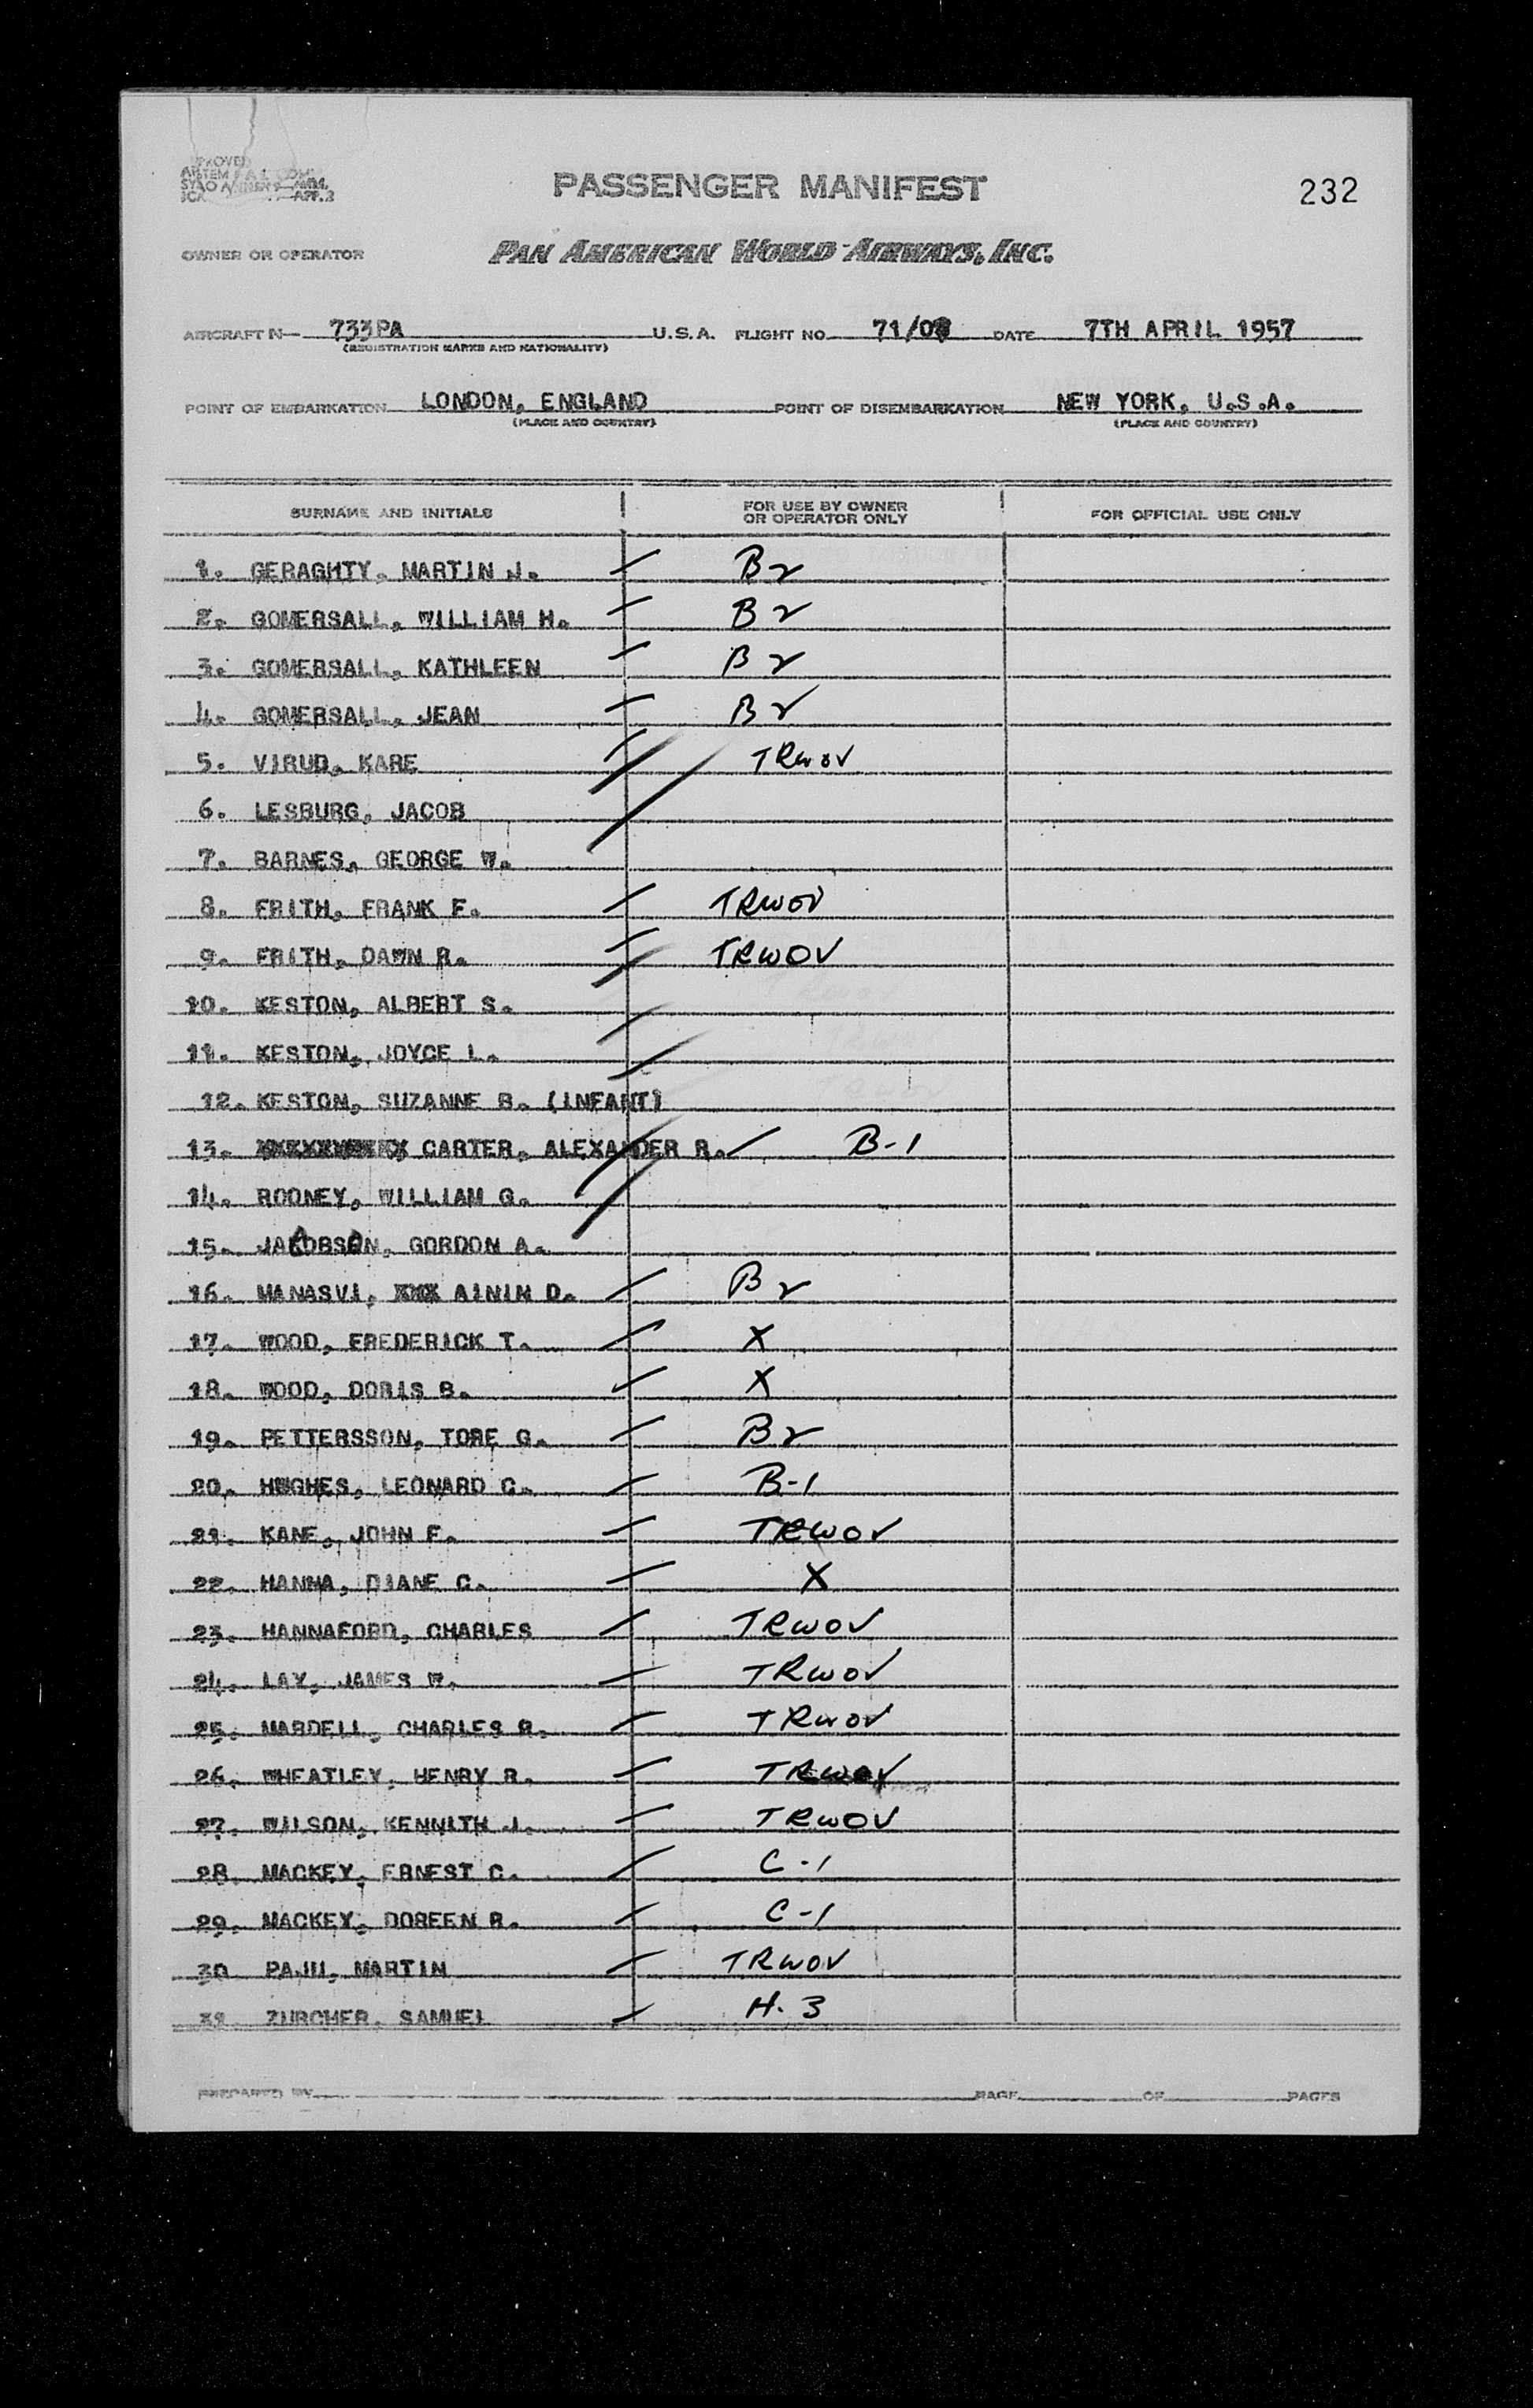 PASSENGER MANIFEST
232
OWNER OR OPERATOR PAN AMERICAN WORLD AIRWAYS, INC.
AIRCRAFT N— 733PA U.S.A. FLIGHT NO. 71/07 DATE 7TH APRIL 1957
(REGISTRATION MARKS AND NATIONALITY)
POINT OF EMBARKATION LONDON, ENGLAND POINT OF DISEMBARKATION NEW YORK, U.S.A.
(PLACE AND COUNTRY) (PLACE AND COUNTRY)
SURNAME AND INITIALS FOR USE BY OWNER OR OPERATOR ONLY FOR OFFICIAL USE ONLY
1. GERAGHTY, MARTIN J. B2
2. GOMERSALL, WILLIAM H. B2
3. GOMERSALL, KATHLEEN B2
4. GOMERSALL, JEAN B2
5. VIRUD, KARE TRWOV
6. LESBURG, JACOB
7. BARNES, GEORGE W.
8. FRITH, FRANK F. TRWOV
9. FRITH, DAWN R. TRWOV
10. KESTON, ALBERT S.
11. KESTON, JOYCE L.
12. KESTON, SUZANNE B. (INFANT)
13. CARTER, ALEXANDER R. B-1
14. ROONEY, WILLIAM G.
15. JACOBSON, GORDON A.
16. MANASVI, XXX AININ D. B2
17. WOOD, FREDERICK T. X
18. WOOD, DORIS B. X
19. PETTERSSON, TORE G. B2
20. HUGHES, LEONARD C. B-1
21. KANE, JOHN F. TRWOV
22. HANNA, DIANE C. X
23. HANNAFORD, CHARLES TRWOV
24. LAY, JAMES W. TRWOV
25. MARDELL, CHARLES R. TRWOV
26. WHEATLEY, HENRY R. TRWOV
27. WILSON, KENNITH J. TRWOV
28. MACKEY, ERNEST C. C-1
29. MACKEY, DOREEN R. C-1
30 PAJU, MARTIN TRWOV
31. ZURCHER, SAMUEL H-3
PREPARED BY PAGE OF PAGES